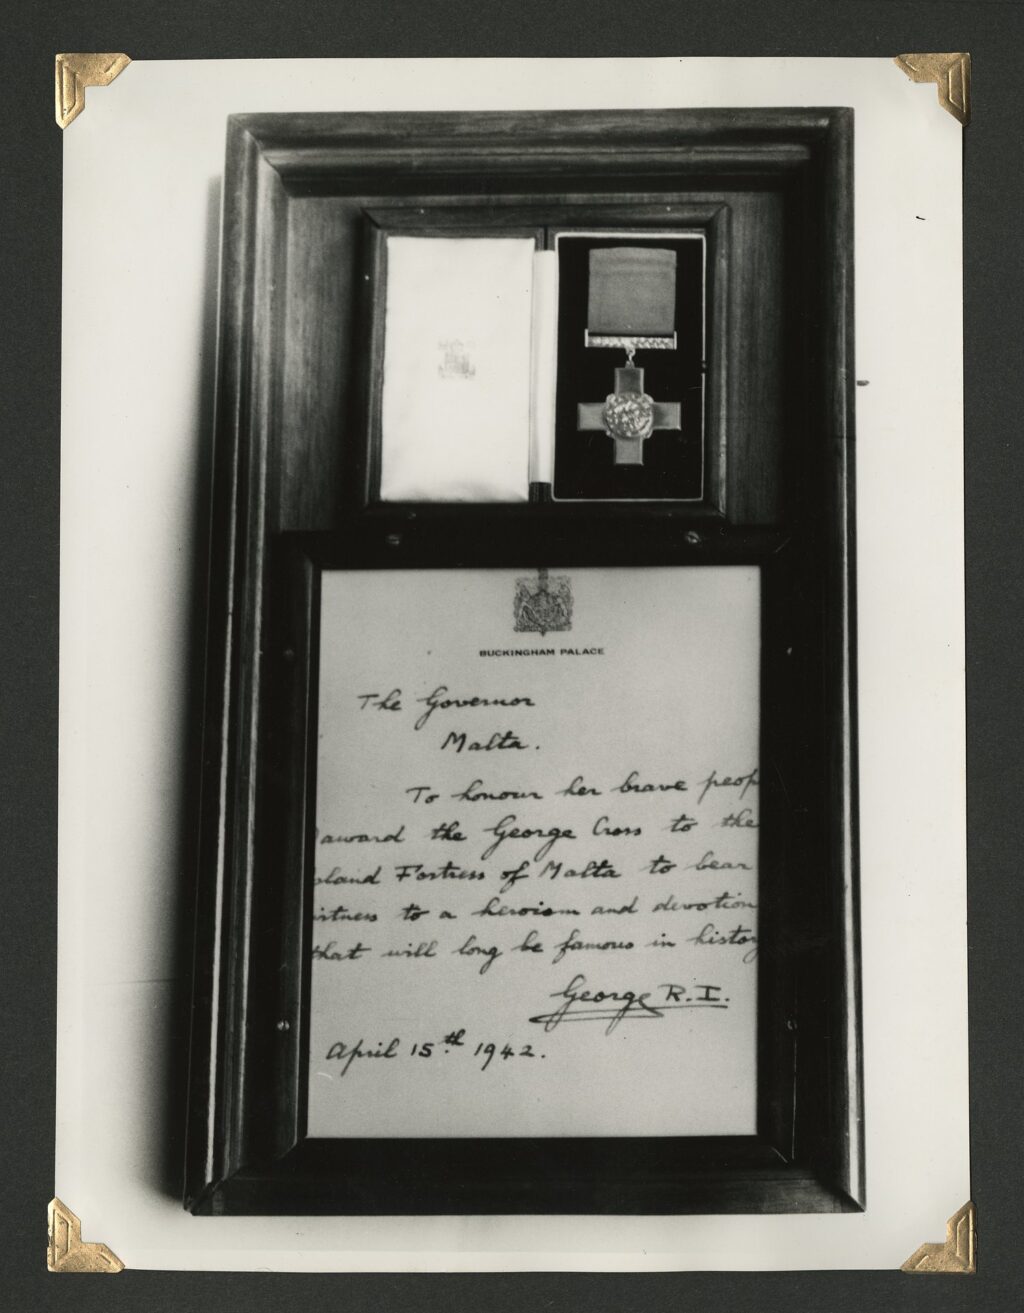 BUCKINGHAM PALACE
The Governor
Malta.
To honour her brave peop
award the George Cross to the
sland Fortress of Malta to bear
itness to a heroism and devotion
that will long be famous in histor
George R.I.
April 15th 1942.